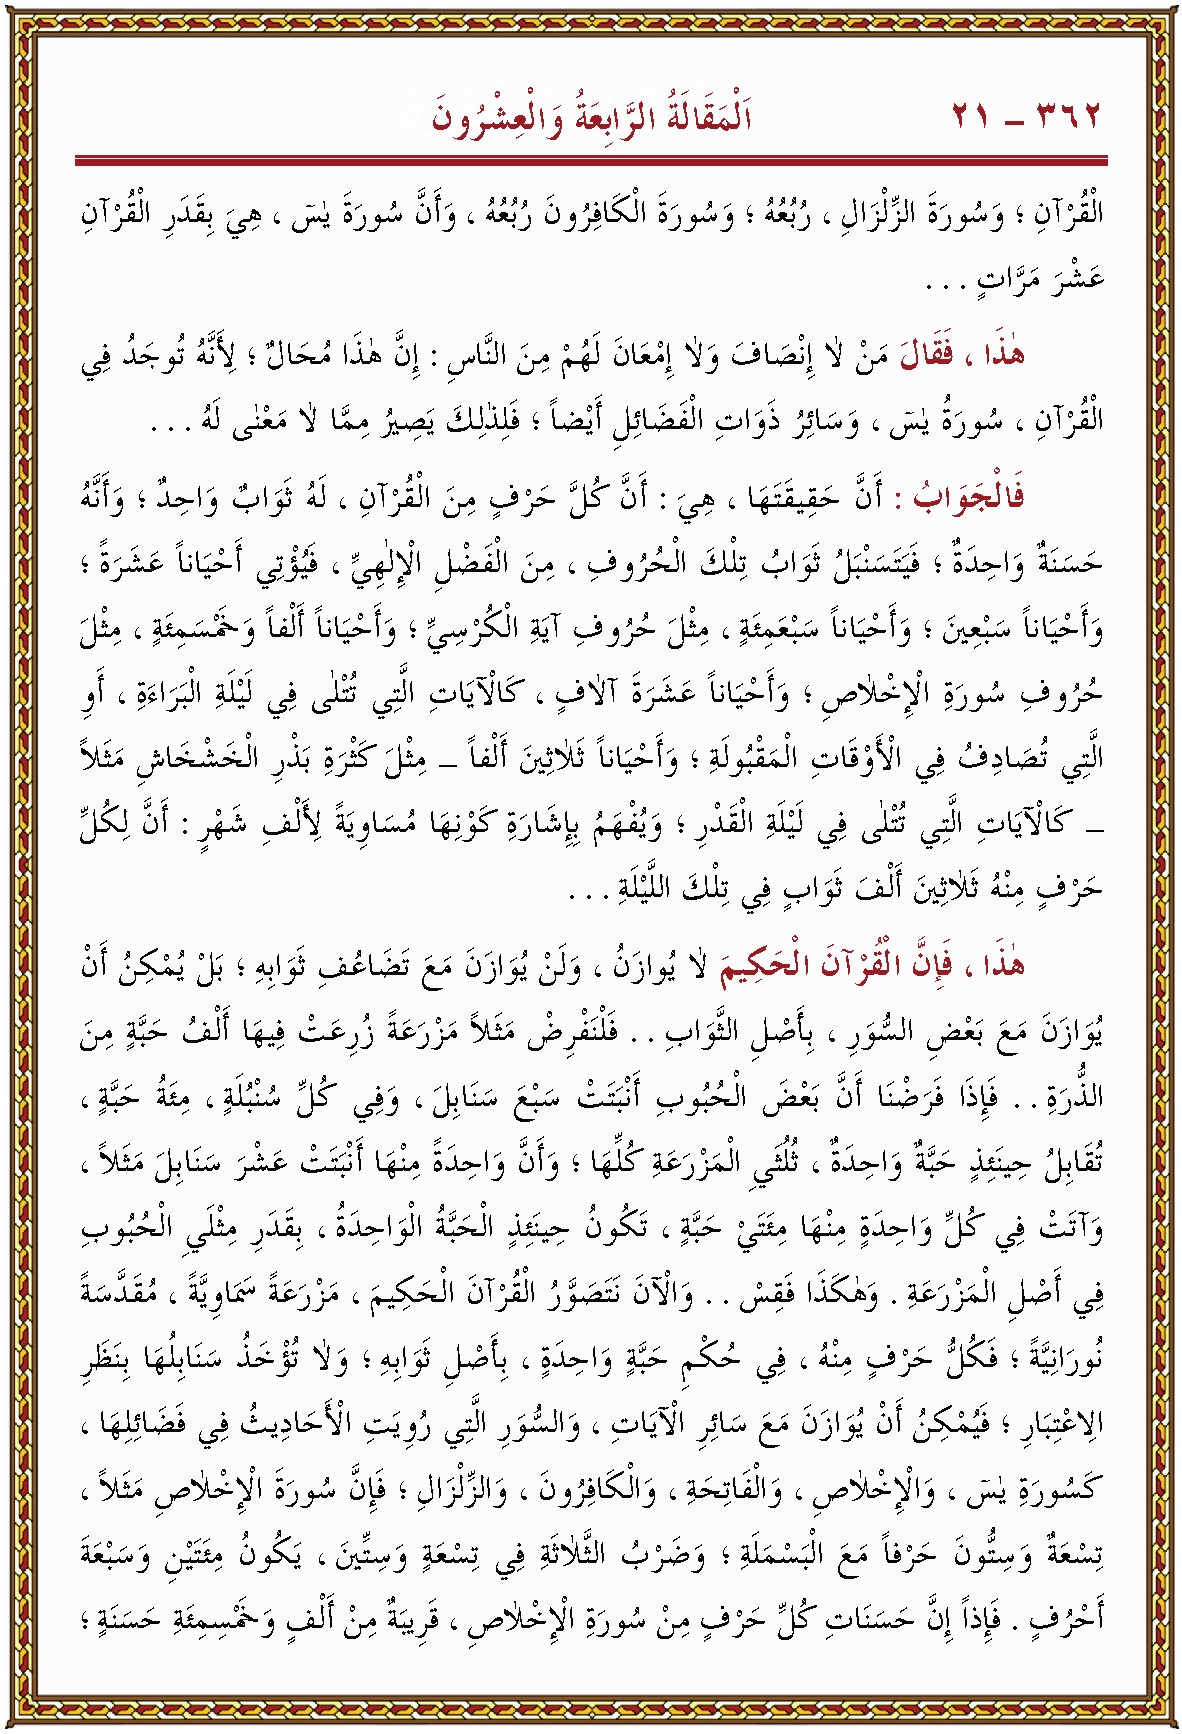 ٣٦٢ – ٢١ اَلْمَقَالَةُ الرَّابِعَةُ وَالْعِشْرُونَ
الْقُرْآنِ ؛ وَسُورَةَ الزِّلْزَالِ ، رُبُعُهُ ؛ وَسُورَةَ الْكَافِرُونَ رُبُعُهُ ، وَأَنَّ سُورَةَ يٰسٓ ، هِيَ بِقَدَرِ الْقُرْآنِ
عَشْرَ مَرَّاتٍ . . .
هٰذَا ، فَقَالَ مَنْ لاٰ إِنْصَافَ وَلاٰ إِمْعَانَ لَهُمْ مِنَ النَّاسِ : إِنَّ هٰذَا مُحَالٌ ؛ لِأَنَّهُ تُوجَدُ فِي
الْقُرْآنِ ، سُورَةُ يٰسٓ ، وَسَائِرُ ذَوَاتِ الْفَضَائِلِ أَيْضاً ؛ فَلِذٰلِكَ يَصِيرُ مِمَّا لاٰ مَعْنٰى لَهُ . . .
فَالْجَوَابُ : أَنَّ حَقِيقَتَهَا ، هِيَ : أَنَّ كُلَّ حَرْفٍ مِنَ الْقُرْآنِ ، لَهُ ثَوَابٌ وَاحِدٌ ؛ وَأَنَّهُ
حَسَنَةٌ وَاحِدَةٌ ؛ فَيَتَسَنْبَلُ ثَوَابُ تِلْكَ الْحُرُوفِ ، مِنَ الْفَضْلِ الْإِلٰهِيِّ ، فَيُؤْتِي أَحْيَاناً عَشَرَةً ؛
وَأَحْيَاناً سَبْعِينَ ؛ وَأَحْيَاناً سَبْعَمِئَةٍ ، مِثْلَ حُرُوفِ آيَةِ الْكُرْسِيِّ ؛ وَأَحْيَاناً أَلْفاً وَخَمْسَمِئَةٍ ، مِثْلَ
حُرُوفِ سُورَةِ الْإِخْلاٰصِ ؛ وَأَحْيَاناً عَشَرَةَ آلاٰفٍ ، كَالْآيَاتِ الَّتِي تُتْلٰى فِي لَيْلَةِ الْبَرَاءَةِ ، أَوِ
الَّتِي تُصَادِفُ فِي الْأَوْقَاتِ الْمَقْبُولَةِ ؛ وَأَحْيَاناً ثَلاٰثِينَ أَلْفاً – مِثْلَ كَثْرَةِ بَذْرِ الْخَشْخَاشِ مَثَلاً
– كَالْآيَاتِ الَّتِي تُتْلٰى فِي لَيْلَةِ الْقَدْرِ ؛ وَيُفْهَمُ بِإِشَارَةِ كَوْنِهَا مُسَاوِيَةً لِأَلْفِ شَهْرٍ : أَنَّ لِكُلِّ
حَرْفٍ مِنْهُ ثَلاٰثِينَ أَلْفَ ثَوَابٍ فِي تِلْكَ اللَّيْلَةِ . . .
هٰذَا ، فَإِنَّ الْقُرْآنَ الْحَكِيمَ لاٰ يُوَازَنُ ، وَلَنْ يُوَازَنَ مَعَ تَضَاعُفِ ثَوَابِهِ ؛ بَلْ يُمْكِنُ أَنْ
يُوَازَنَ مَعَ بَعْضِ السُّوَرِ ، بِأَصْلِ الثَّوَابِ . . فَلْنَفْرِضْ مَثَلاً مَزْرَعَةً زُرِعَتْ فِيهَا أَلْفُ حَبَّةٍ مِنَ
الذُّرَةِ . . فَإِذَا فَرَضْنَا أَنَّ بَعْضَ الْحُبُوبِ أَنْبَتَتْ سَبْعَ سَنَابِلَ ، وَفِي كُلِّ سُنْبُلَةٍ ، مِئَةُ حَبَّةٍ ،
تُقَابِلُ حِينَئِذٍ حَبَّةٌ وَاحِدَةٌ ، ثُلُثَيِ الْمَزْرَعَةِ كُلِّهَا ؛ وَأَنَّ وَاحِدَةً مِنْهَا أَنْبَتَتْ عَشْرَ سَنَابِلَ مَثَلاً ،
وَآتَتْ فِي كُلِّ وَاحِدَةٍ مِنْهَا مِئَتَيْ حَبَّةٍ ، تَكُونُ حِينَئِذٍ الْحَبَّةُ الْوَاحِدَةُ ، بِقَدَرِ مِثْلَيِ الْحُبُوبِ
فِي أَصْلِ الْمَزْرَعَةِ . وَهٰكَذَا فَقِسْ . . وَالْآنَ نَتَصَوَّرُ الْقُرْآنَ الْحَكِيمَ ، مَزْرَعَةً سَمَاوِيَّةً ، مُقَدَّسَةً
نُورَانِيَّةً ؛ فَكُلُّ حَرْفٍ مِنْهُ ، فِي حُكْمِ حَبَّةٍ وَاحِدَةٍ ، بِأَصْلِ ثَوَابِهِ ؛ وَلاٰ تُؤْخَذُ سَنَابِلُهَا بِنَظَرِ
الاِعْتِبَارِ ؛ فَيُمْكِنُ أَنْ يُوَازَنَ مَعَ سَائِرِ الْآيَاتِ ، وَالسُّوَرِ الَّتِي رُوِيَتِ الْأَحَادِيثُ فِي فَضَائِلِهَا ،
كَسُورَةِ يٰسٓ ، وَالْإِخْلاٰصِ ، وَالْفَاتِحَةِ ، وَالْكَافِرُونَ ، وَالزِّلْزَالِ ؛ فَإِنَّ سُورَةَ الْإِخْلاٰصِ مَثَلاً ،
تِسْعَةٌ وَسِتُّونَ حَرْفاً مَعَ الْبَسْمَلَةِ ؛ وَضَرْبُ الثَّلاٰثَةِ فِي تِسْعَةٍ وَسِتِّينَ ، يَكُونُ مِئَتَيْنِ وَسَبْعَةَ
أَحْرُفٍ . فَإِذاً إِنَّ حَسَنَاتِ كُلِّ حَرْفٍ مِنْ سُورَةِ الْإِخْلاٰصِ ، قَرِيبَةٌ مِنْ أَلْفٍ وَخَمْسِمِئَةِ حَسَنَةٍ ؛